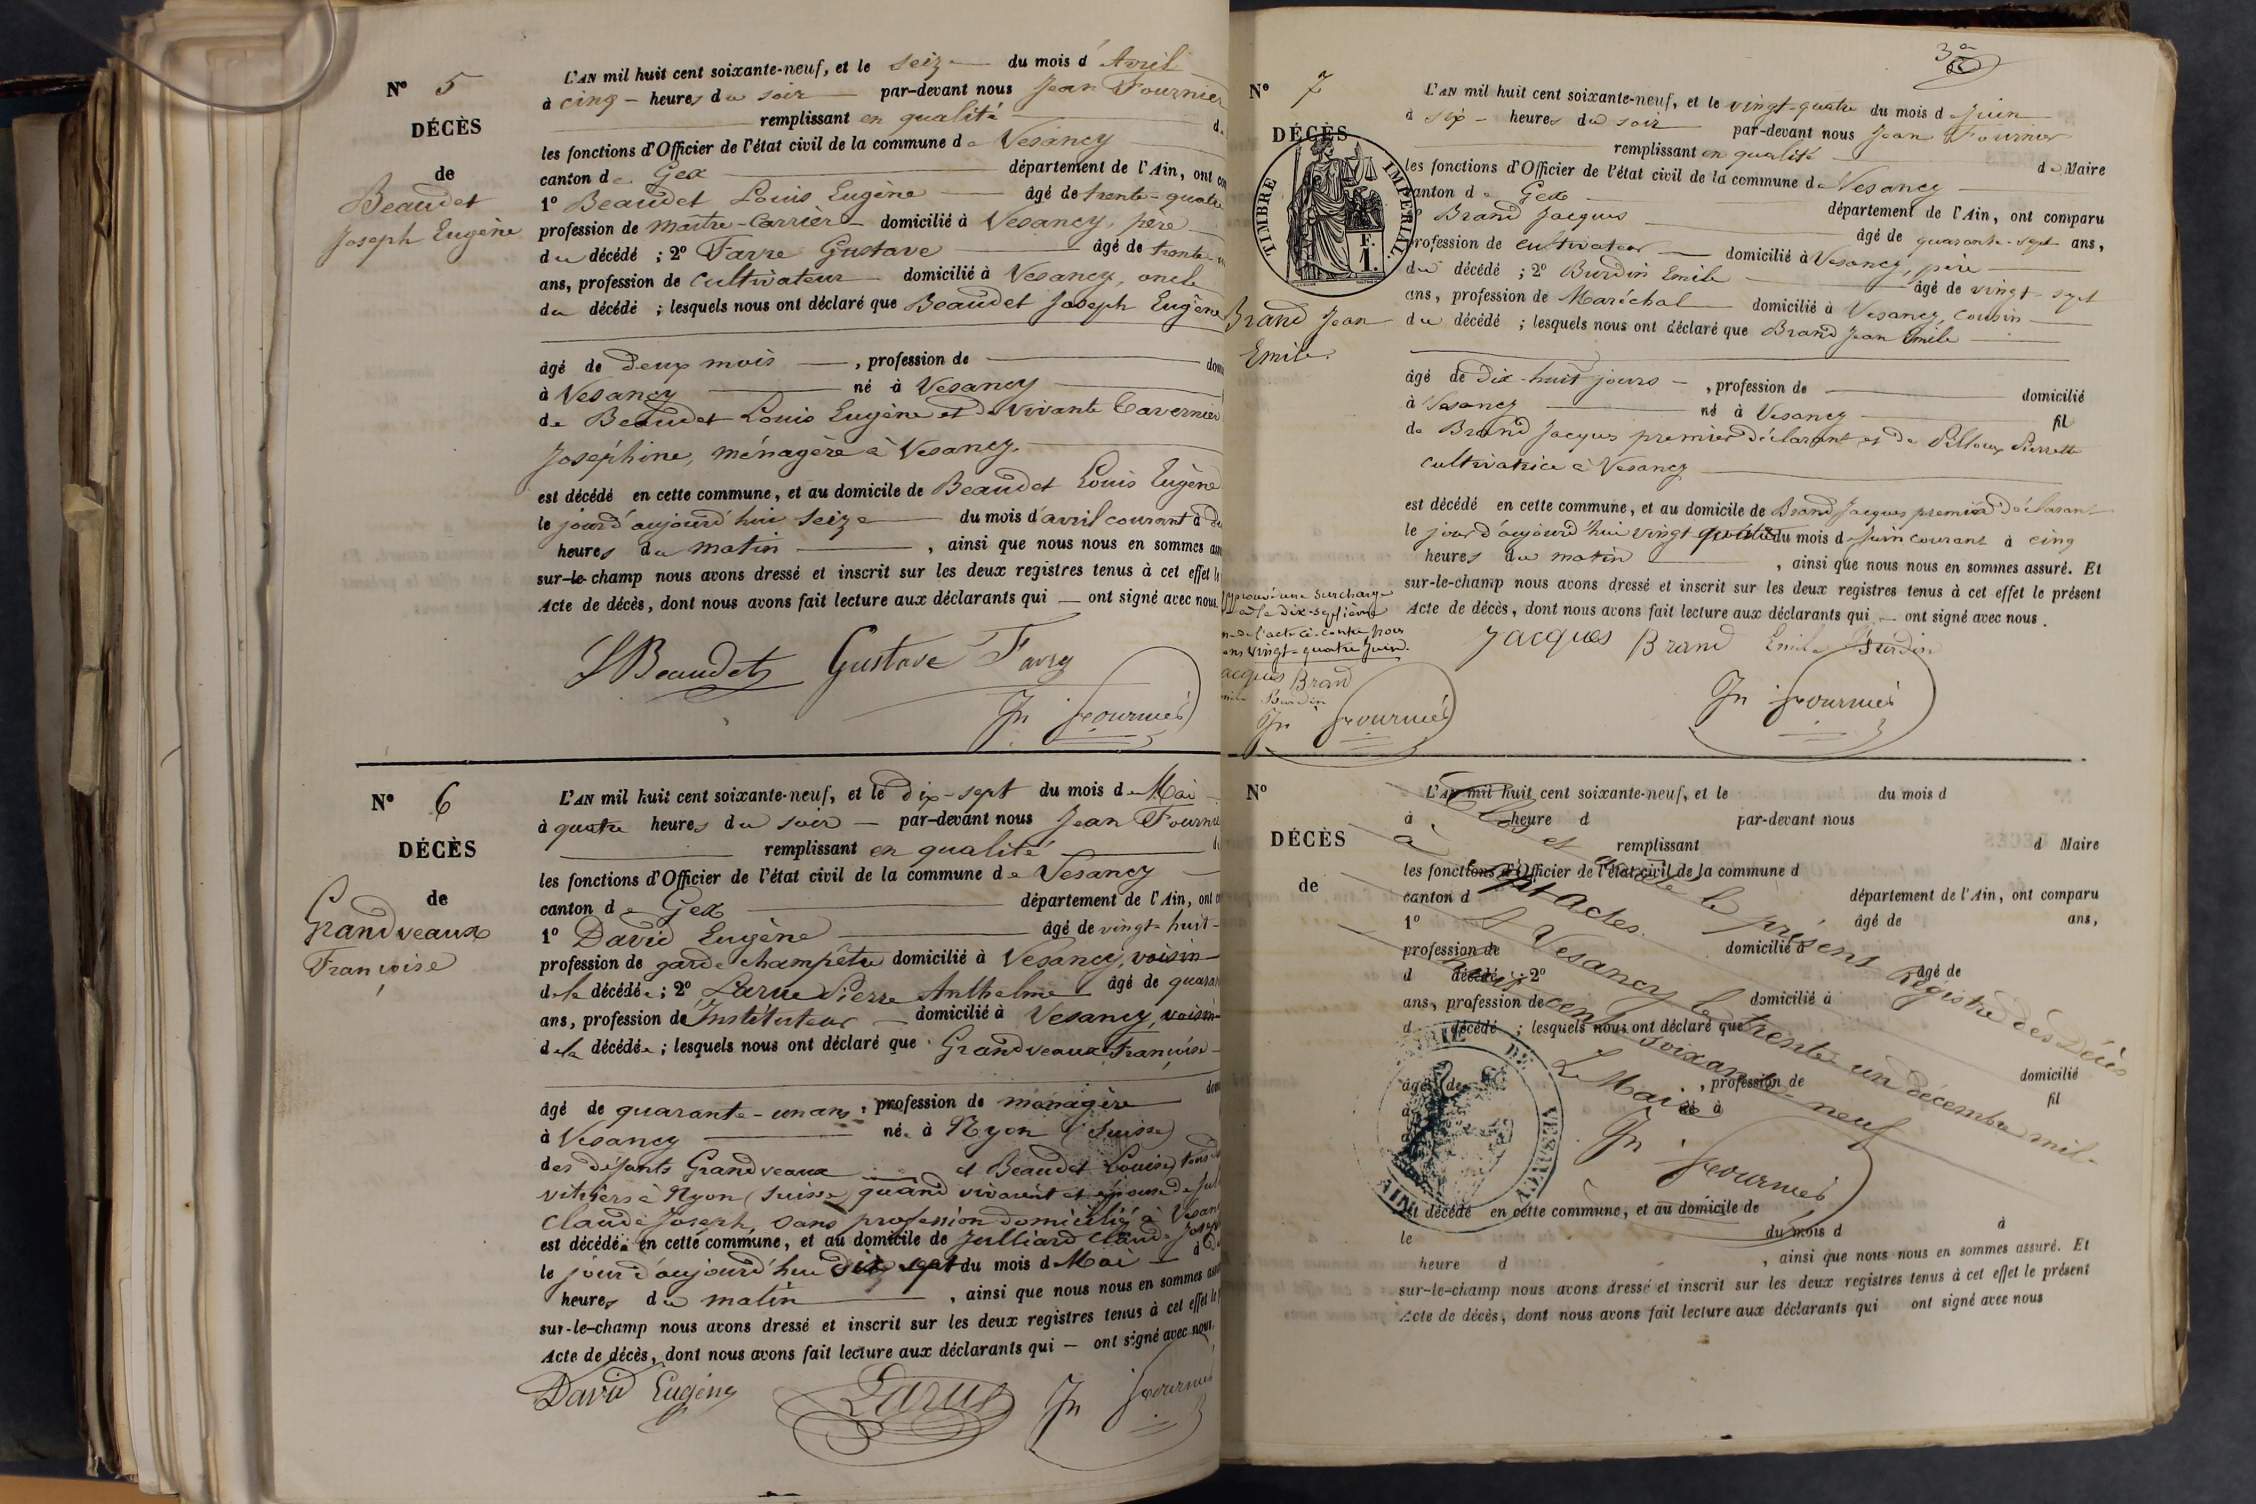 N° 5
DÉCÈS
de
Beaudet
Joseph Eugène
L'AN mil huit cent soixante-neuf, et le seize du mois d'Avril
à cinq heures du soir par-devant nous Jean Fournier
remplissant en qualité d
les fonctions d'Officier de l'état civil de la commune de Vesancy
canton de Gex département de l'Ain, ont
1° Beaudet Louis Eugène âgé de trente-quatre
profession de maître-Carrier domicilié à Vesancy, père
du décédé ; 2° Favre Gustave âgé de trente
ans, profession de Cultivateur domicilié à Vesancy, oncle
du décédé ; lesquels nous ont déclaré que Beaudet Joseph Eugène
âgé de deux mois , profession de
à Vesancy né à Vesancy
de Beaudet Louis Eugène et de vivante Tavernier
Joséphine, ménagère à Vesancy.
est décédé en cette commune, et au domicile de Beaudet Louis Eugène
le jour d'aujourd'hui seize du mois d'avril courant à
heures du matin , ainsi que nous nous en sommes
sur-le-champ nous avons dressé et inscrit sur les deux registres tenus à cet effet
Acte de décès, dont nous avons fait lecture aux déclarants qui — ont signé avec nous.
L Beaudet Gustave Favre
Jn Fournier
N° 6
DÉCÈS
de
Grandveaux
Françoise
L'AN mil huit cent soixante-neuf, et le dix-sept du mois de Mai
à quatre heures du soir — par-devant nous Jean Fournier
remplissant en qualité
les fonctions d'Officier de l'état civil de la commune de Vesancy
canton de Gex département de l'Ain, ont
1° David Eugène âgé de vingt-huit
profession de garde champêtre domicilié à Vesancy, voisin
de la décédée ; 2° Larue Pierre Anthelme âgé de
ans, profession de Instituteur domicilié à Vesancy, voisin
de la décédée ; lesquels nous ont déclaré que Grandveaux Françoise
âgé de quarante-un ans, profession de ménagère
à Vesancy née à Nyon (Suisse)
des défunts Grandveaux et Beaudet Louise, tous
à Nyon (Suisse) quand vivaient et épouse de
Claude Joseph, sans profession domicilié à
est décédée en cette commune, et au domicile de Julliard Claude
le jour d'aujourd'hui dix sept du mois de Mai
heures du matin , ainsi que nous nous en sommes
sur-le-champ nous avons dressé et inscrit sur les deux registres tenus à cet effet
Acte de décès, dont nous avons fait lecture aux déclarants qui — ont signé avec nous.
David Eugène Larue Jn Fournier
3e
N° 7
DÉCÈS
TIMBRE IMPÉRIAL.
F.
1.
Brand Jean
Emile.
L'AN mil huit cent soixante-neuf, et le vingt-quatre du mois de Juin
à six heures du soir par-devant nous Jean Fournier
remplissant en qualité de Maire
les fonctions d'Officier de l'état civil de la commune de Vesancy
canton de Gex département de l'Ain, ont comparu
Brand Jacques âgé de quarante-sept ans,
profession de cultivateur domicilié à Vesancy, père
du décédé ; 2° Burdin Emile âgé de vingt-sept
ans, profession de Maréchal domicilié à Vesancy, Cousin
du décédé ; lesquels nous ont déclaré que Brand Jean Emile
âgé de dix-huit jours — , profession de domicilié
à Vesancy né à Vesancy fil
de Brand Jacques premier déclarant et de Pierrette
cultivatrice à Vesancy
est décédé en cette commune, et au domicile de Brand Jacques premier déclarant
le jour d'aujourd'hui vingt quatre du mois de Juin courant à cinq
heures du matin , ainsi que nous nous en sommes assuré. Et
sur-le-champ nous avons dressé et inscrit sur les deux registres tenus à cet effet le présent
Acte de décès, dont nous avons fait lecture aux déclarants qui — ont signé avec nous.
Jacques Brand Emile Burdin
Jn Fournier
une surcharge
dix-septième
de l'acte ci-contre
vingt-quatre Juin.
Jacques Brand
Burdin
Jn Fournier
N°
DÉCÈS
de
L'AN mil huit cent soixante-neuf, et le du mois d
à heure d par-devant nous
remplissant d Maire
les fonctions d'Officier de l'état civil de la commune d
canton d département de l'Ain, ont comparu
1° âgé de ans,
profession de domicilié à
d décédé ; 2° âgé de
ans, profession de domicilié à
d décédé ; lesquels nous ont déclaré que
âgé de , profession de domicilié
à né à fil
est décédé en cette commune, et au domicile de
le du mois d à
heure d , ainsi que nous nous en sommes assuré. Et
sur-le-champ nous avons dressé et inscrit sur les deux registres tenus à cet effet le présent
Acte de décès, dont nous avons fait lecture aux déclarants qui ont signé avec nous
Clos et arrêté le présent Régistre des Décès
à sept actes.
à Vesancy le trente un décembre mil-
huit cent soixante-neuf
Le Maire
Jn Fournier
MAIRIE DE VESANCY
AIN